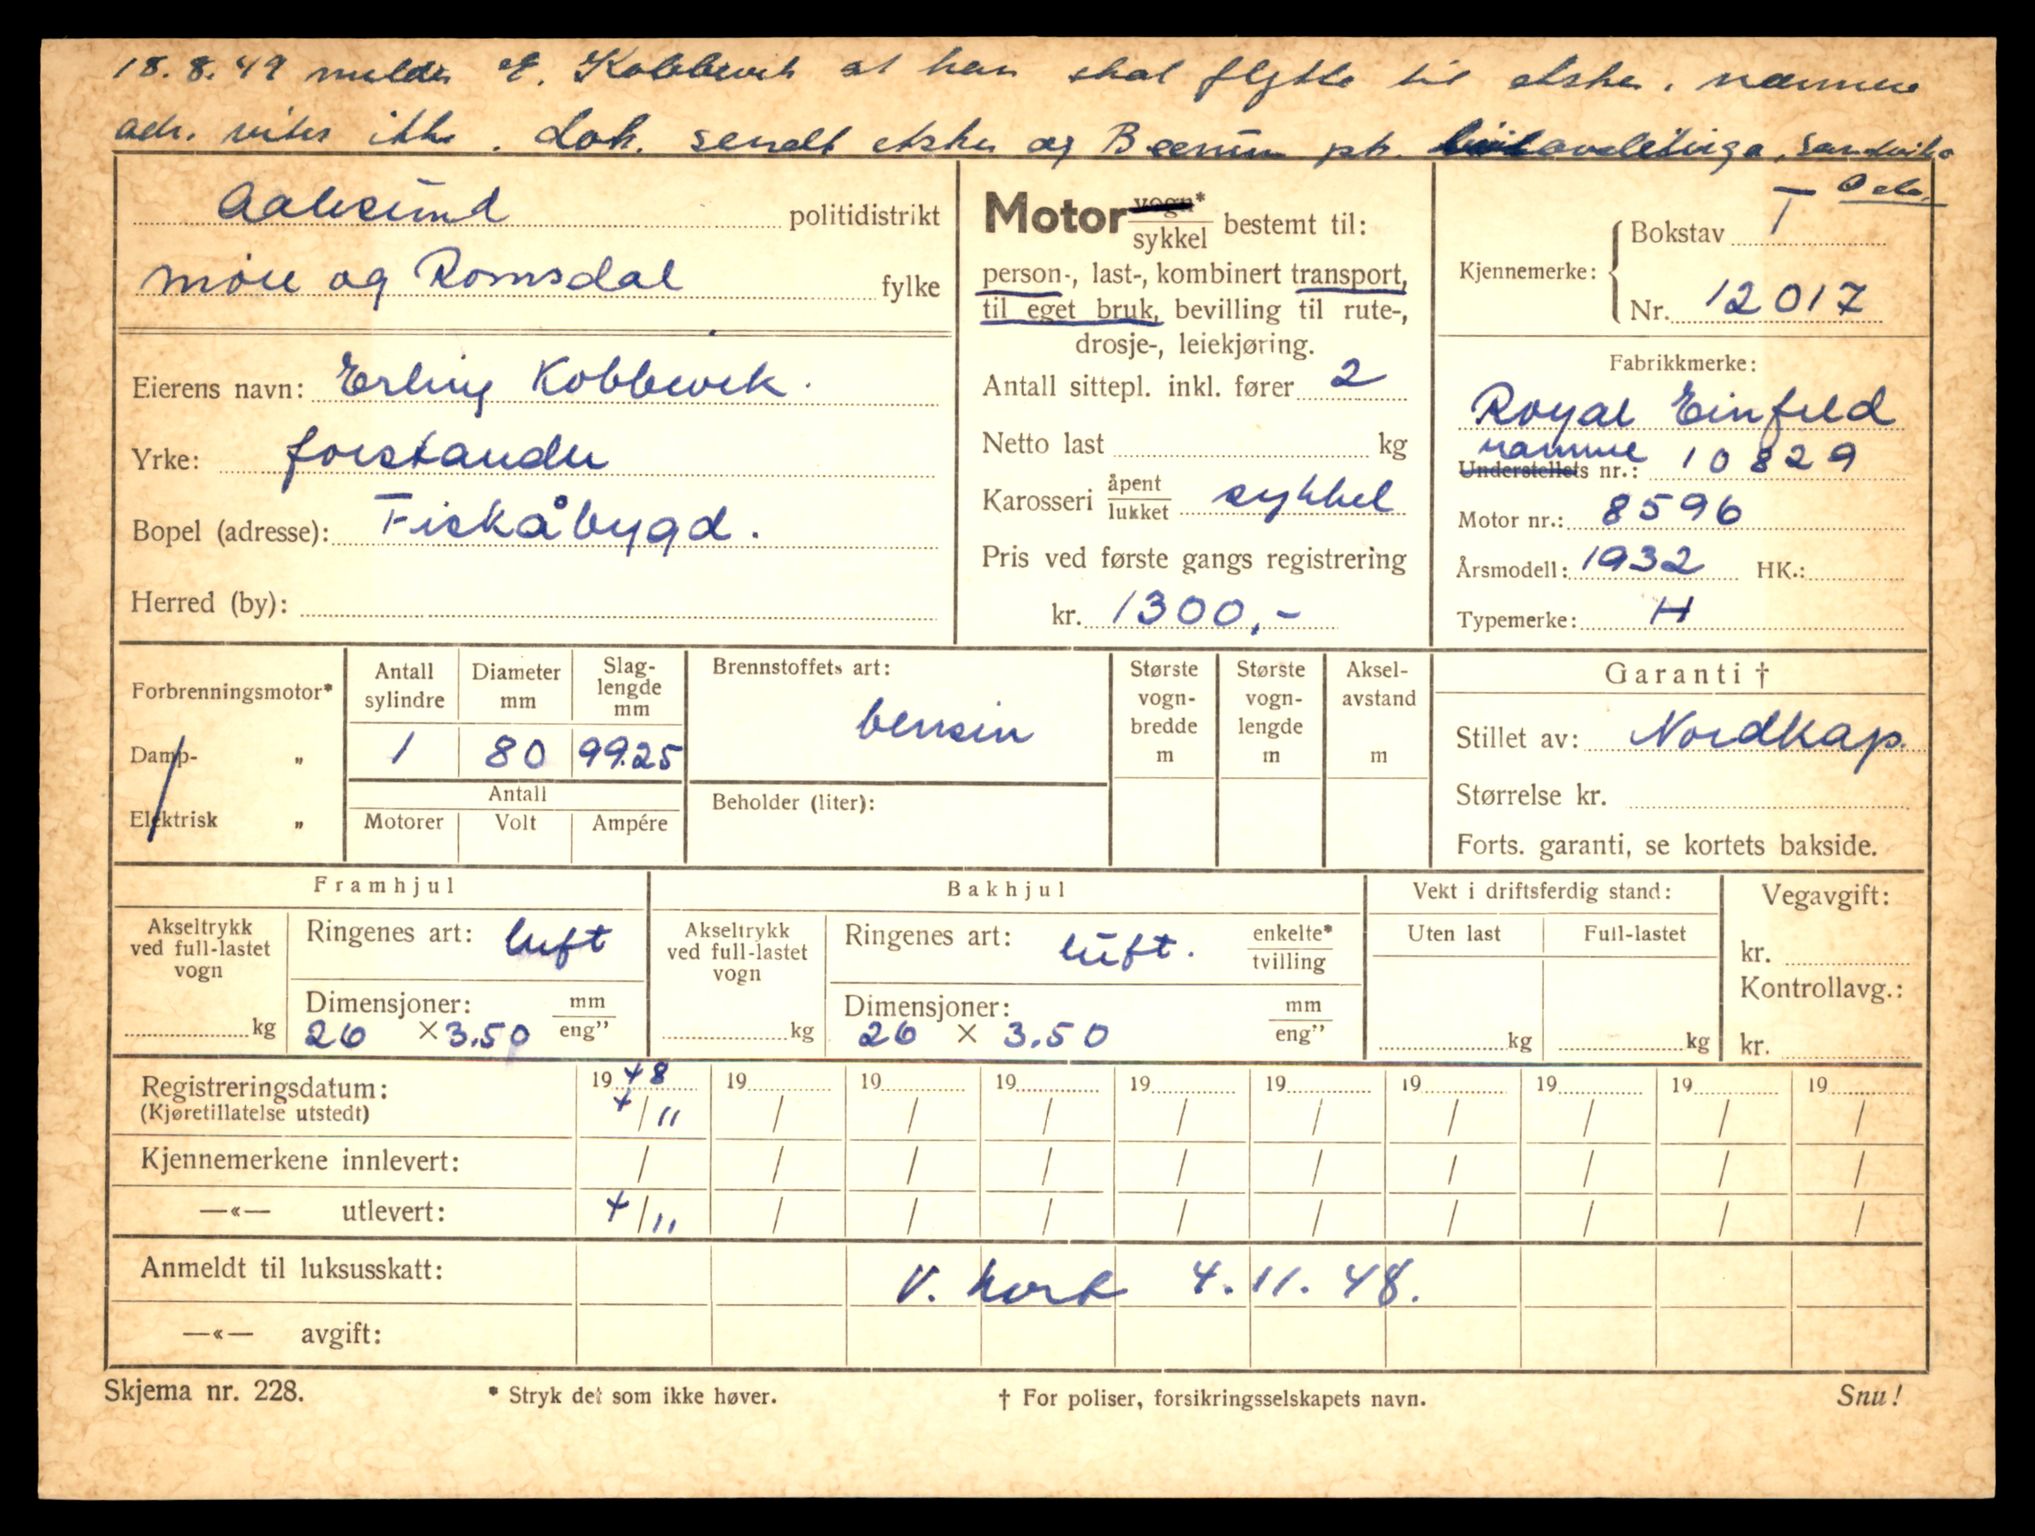 18.8.49 melder E. Kobbevik at han skal flytte til Asker. nærmere
adr. vites ikke. dok. sendt Asker og Bærum pk. Sandvika
Oslo.
Aalesund politidistrikt
Møre og Romsdal fylke
Eierens navn: Erling Kobbevik.
Yrke: forstander
Bopel (adresse): Fiskåbygd.
Herred (by):
Motor vogn* / sykkel bestemt til:
person-, last-, kombinert transport,
til eget bruk, bevilling til rute-,
drosje-, leiekjøring.
Antall sittepl. inkl. fører 2
Netto last kg
Karosseri åpent / lukket sykkel
Pris ved første gangs registrering
kr. 1300,-
Kjennemerke: Bokstav T
Nr. 12017
Fabrikkmerke:
Royal Einfeld
ramme
Understellets nr.: 10829
Motor nr.: 8596
Årsmodell: 1932 HK.:
Typemerke: H
Forbrenningsmotor*
Damp- „
Elektrisk „
Antall sylindre Diameter mm Slag-lengde mm
1 80 99.25
Antall
Motorer Volt Ampére
Brennstoffets art:
bensin
Beholder (liter):
Største vogn-bredde m
Største vogn-lengde m
Aksel-avstand m
Garanti †
Stillet av: Nordkap.
Størrelse kr.
Forts. garanti, se kortets bakside.
Framhjul
Akseltrykk ved full-lastet vogn
kg
Ringenes art: luft
Dimensjoner: mm / eng”
26 × 3.50
Bakhjul
Akseltrykk ved full-lastet vogn
kg
Ringenes art: luft. enkelte* / tvilling
Dimensjoner: mm / eng”
26 × 3.50
Vekt i driftsferdig stand:
Uten last Full-lastet
kg kg
Vegavgift:
kr.
Kontrollavg.:
kr.
Registreringsdatum: 1948 19 19 19 19 19 19 19 19 19
(Kjøretillatelse utstedt) 4/11 / / / / / / / / /
Kjennemerkene innlevert: / / / / / / / / / /
—«— utlevert: 4/11 / / / / / / / / /
Anmeldt til luksusskatt: V. kort 4.11.48.
—«— avgift:
Skjema nr. 228. * Stryk det som ikke høver. † For poliser, forsikringsselskapets navn. Snu!